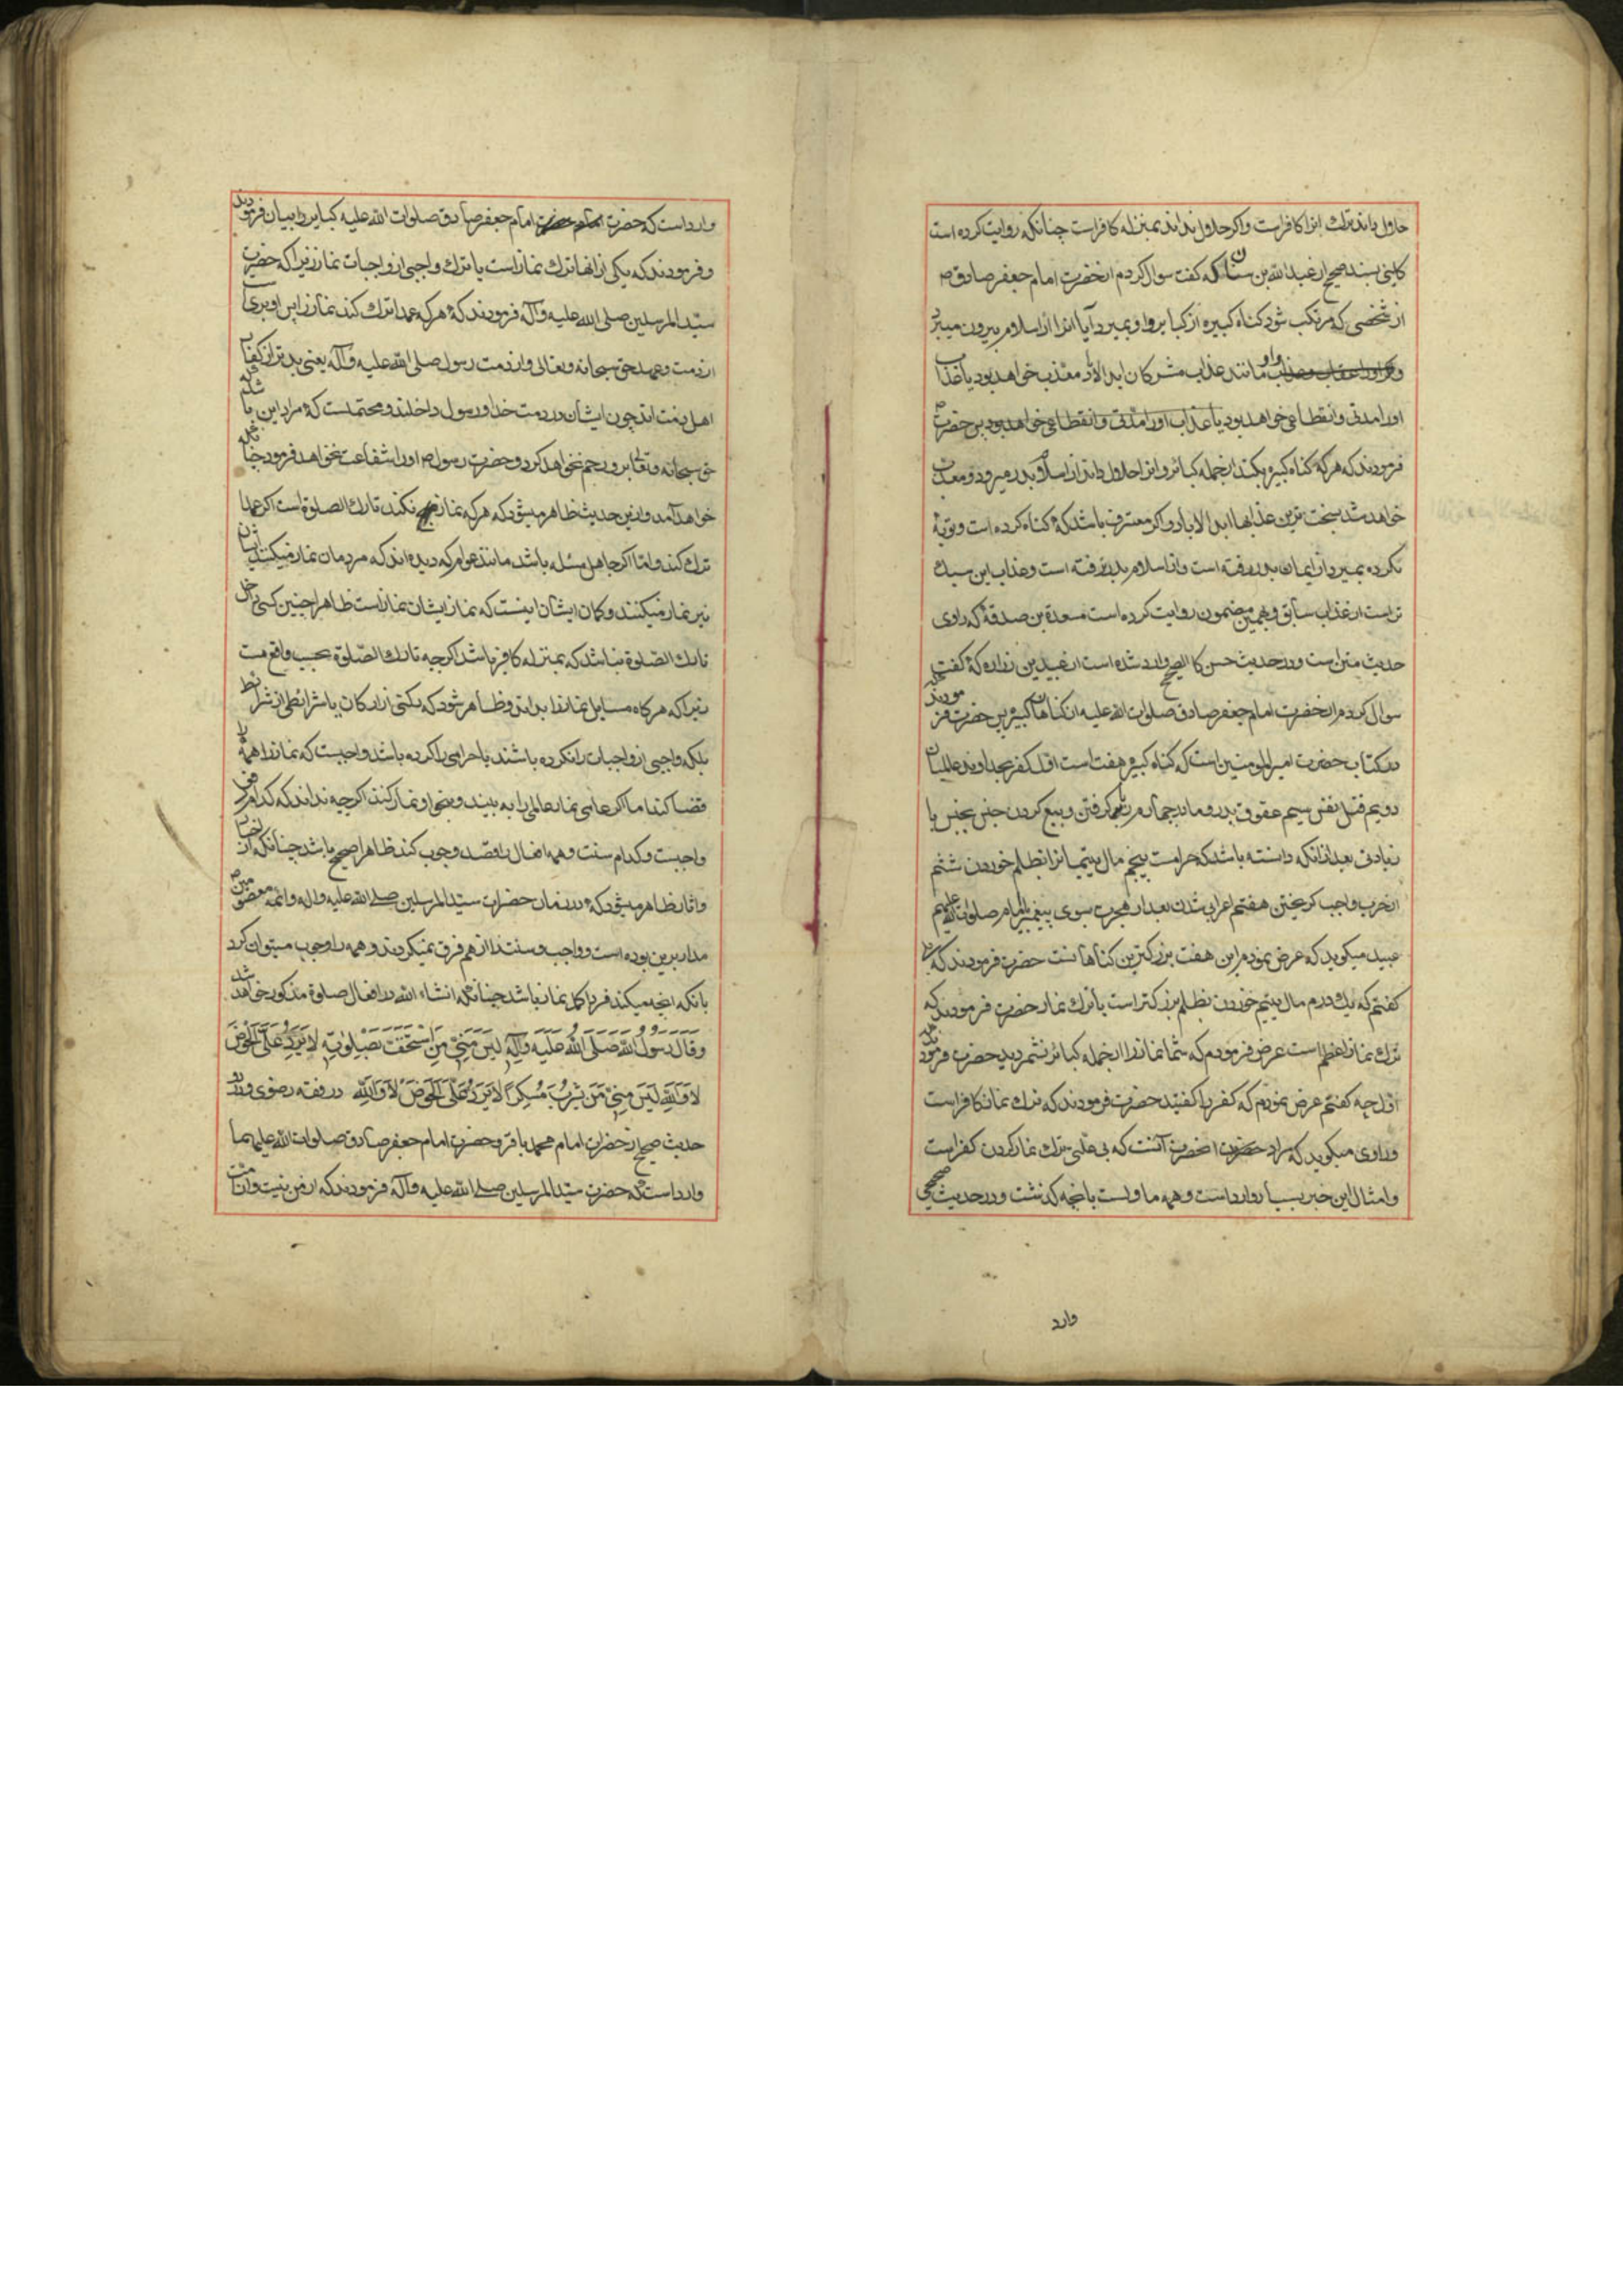 حلال داند ترك انرا کافرست واکر حلال نداند بمنزله کافرست چنانکه روایت کرده است
کلینی بسند صحیح از عبد الله بن سنان که کفت سوال کردم از حضرت امام جعفر صادق ص
از شخصی که مرتکب شود کناه کبیره از کبایر را و بمیرد آیا انرا از اسلام بیرون میبرد
و مانند عذاب مشرکان ابد الاباد معذب خواهد بود یا عذاب
اورا مدتی وانقطاعی خواهد بود یا عذاب اورا مدتی وانقطاعی خواهد بود پس حضرت
فرمودند که هر که کناه کبیره بکند از جمله کبائر وانرا حلال داند از اسلام بدر میرود ومعذب
خواهد شد بسخت ترین عذابها ابد الاباد واکر معترف باشد که کناه کرده است وتوبه
نکرده بمیرد از ایمان بدر رفته است واز اسلام بدر نرفته است وعذاب این سبك
تر است از عذاب سابق وبهمین مضمون روایت کرده است مسعدة بن صدقه که راوی
حدیث متن است ودر حدیث حسن کالصحیح وارد شده است از عبید بن زراره که کفت
سوال کردم از حضرت امام جعفر صادق صلوات الله علیه از کناهان کبیره پس حضرت فرمودند که
در کتاب حضرت امیر المومنین است که کناه کبیره هفت است اول کفر بخداوند عالمیان
دویم قتل نفس سیم عقوق پدر و مادر چهارم ربا کرفتن و بیع کردن جنس بجنس با
زیادتی بعد از انکه دانسته باشد که حرامست پنجم مال یتیمانرا بظلم خوردن ششم
از حرب واجب کریختن هفتم اعرابی شدن بعد از هجرت بسوی پیغمبر یا امام صلوات الله علیهم
عبید میکوید که عرض نمودم این هفت بزرکترین کناهانست حضرت فرمودند که بلی
کفتم که یك درم مال یتیم خوردن بظلم بزرکتر است یا ترك نماز حضرت فرمودند که
ترك نماز اعظم است عرض نمودم که شما نماز را از جمله کبائر نشمردید حضرت فرمودند که
اول چه کفتم عرض نمودم که کفر را کفتید حضرت فرمودند که ترك نماز کافر است
وراوی میکوید که مراد حضرت انحضرت آنست که بی علتی ترك نماز کردن کفر است
وامثال این خبر بسیار وارد است وهمه ماولست بانچه کذشت ودر حدیث صحیحی
وارد
وارد است که حضرت امام جعفر صادق صلوات الله علیه کبایر را بیان فرمودند
وفرمودند که یکی از انها ترك نماز است یا ترك واجبی از واجبات نماز زیرا که حضرت
سید المرسلین صلی الله علیه وآله فرمودند که هر که عمدا ترك کند نماز را پس او بری
از ذمت وعهد حق سبحانه وتعالی واز ذمت رسول صلی الله علیه وآله یعنی بدتر از کفار
اهل ذمت اند چون ایشان در ذمت خدا ورسول داخلند ومحتملست که مراد این باشد که
حق سبحانه وتعالی برو رحم نخواهد کرد وحضرت رسول ص اورا شفاعت نخواهد فرمود چنانکه
خواهد آمد واز این حدیث ظاهر میشود که هر که نماز نکند تارك الصلوة است اکر عمدا
ترك کند واما اکر جاهل مسئله باشد مانند عوام که دیده اند که مردمان نماز میکنند ایشان
نیز نماز میکنند وکمان ایشان اینست که نماز ایشان نماز است ظاهرا چنین کسی داخل
تارك الصلوة نباشد که بمنزله کافر باشد اکر چه تارك الصلوة بحسب واقع هست
زیرا که هرکاه مسایل نماز را بداند وظاهر شود که رکنی از ارکان یا شرایطی از شرایط
بلکه واجبی از واجبات را نکرده باشند یا حرامی را کرده باشد واجبست که نماز را همه را
قضا کند اما اکر عامی نماز عالمی را به بیند وبنحو او نماز کند اکر چه نداند که کدام فعل
واجبست وکدام سنت وهمه افعال را قصد وجوب کند ظاهرا صحیح باشد چنانکه از اخبار
واثار ظاهر میشود که در زمان حضرات سید المرسلین صلی الله علیه واله وائمه معصومین ص
مدار برین بوده است وواجب وسنت را از هم فرق نمیکردند وهمه را وجوب میتوان کرد
بانکه انچه میکند فرد اکمل نماز باشد چنانکه انشاء الله در افعال صلوة مذکور خواهد شد
وَقَالَ رَسُولُ اللهِ صَلَّى اللهُ عَلَيْهِ وَآلِهِ لَيْسَ مِنِّي مَنِ اسْتَخَفَّ بِصَلوتِهِ لَا يَرِدُ عَلَيَّ الْحَوْضَ
لَا وَاللهِ لَيْسَ مِنِّي مَنْ شَرِبَ مُسْكِرًا لَا يَرِدُ عَلَيَّ الْحَوْضَ لَا وَاللهِ در فقه رضوی ودر دو
حدیث صحیح از حضرات امام محمد باقر وحضرت امام جعفر صادق صلوات الله علیهما
وارد است که حضرت سید المرسلین صلی الله علیه وآله فرمودند که از من نیست واز امت